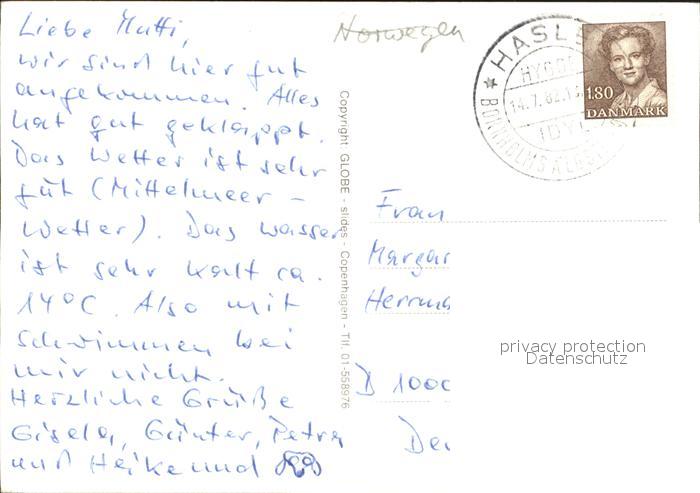 Liebe Mutti,
wir sind hier gut
angekommen. Alles
hat gut geklappt.
Das Wetter ist sehr
gut (Mittelmeer -
Wetter). Das Wasser
ist sehr kalt ca.
14°C. Also mit
schwimmen bei
mir nicht.
Herzliche Grüße
Gisela, Günter, Petra
und Heike und
Norwegen
Copyright: GLOBE - slides - Copenhagen - Tlf. 01-558976
* HASLE
HYGGE
14.7.82.
IDYL
BORNHOLMS
1.80
DANMARK
Frau
Margar
Herrma
D 1000
privacy protection
Datenschutz